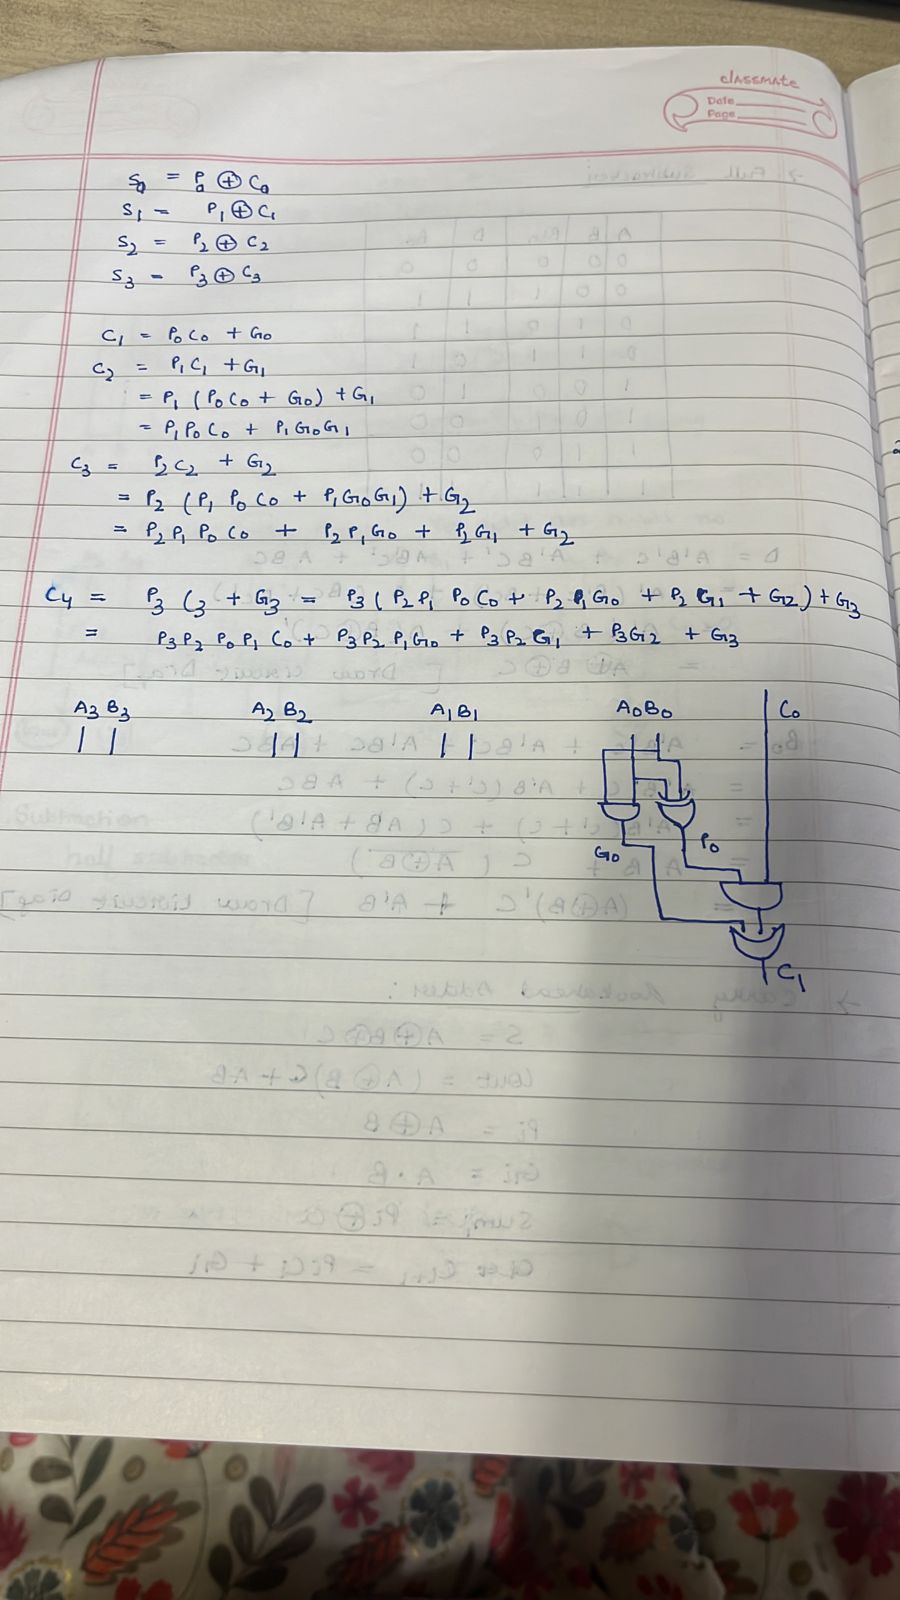 classmate
Date
Page
S0 = P0 ⊕ C0
S1 = P1 ⊕ C1
S2 = P2 ⊕ C2
S3 = P3 ⊕ C3
C1 = P0C0 + G0
C2 = P1C1 + G1
= P1 (P0C0 + G0) + G1
= P1P0C0 + P1G0G1
C3 = P2C2 + G2
= P2 (P1 P0C0 + P1G0G1) + G2
= P2P1P0C0 + P2P1G0 + P2G1 + G2
C4 = P3C3 + G3 = P3 (P2P1 P0C0 + P2P1G0 + P2G1 + G2) + G3
= P3P2P0P1C0 + P3P2P1G0 + P3P2G1 + P3G2 + G3
A3 B3 A2 B2 A1 B1 A0 B0 C0
G0 P0
C1